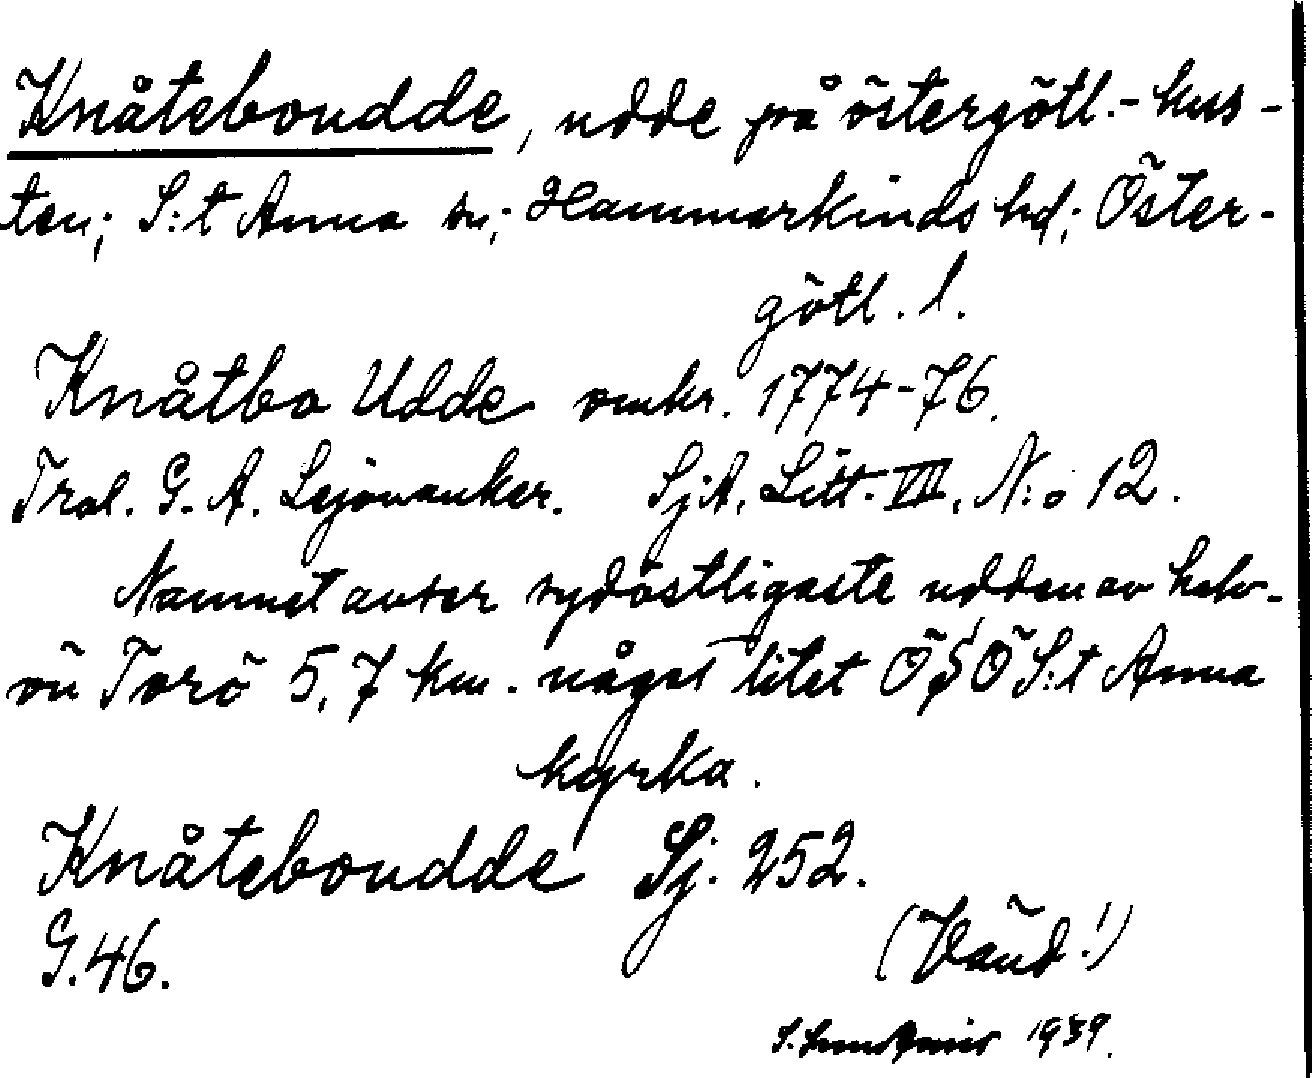 Knåteboudde, udde på östergötl.-kus-
ten; S:t Anna sn; Hammarkinds hd; Öster-
götl. l.
Knåtbo Udde omkr. 1774-76.
Tral. G. A. Lejonanker. SjA. Litt. VII, N:o 12.
Namnet avser sydöstligaste udden av halv-
ön Torö 5,7 km. något litet ÖSÖ S:t Anna
kyrka.
Knåteboudde Sj. 252.
G.46.
(Vänd!)
1939.